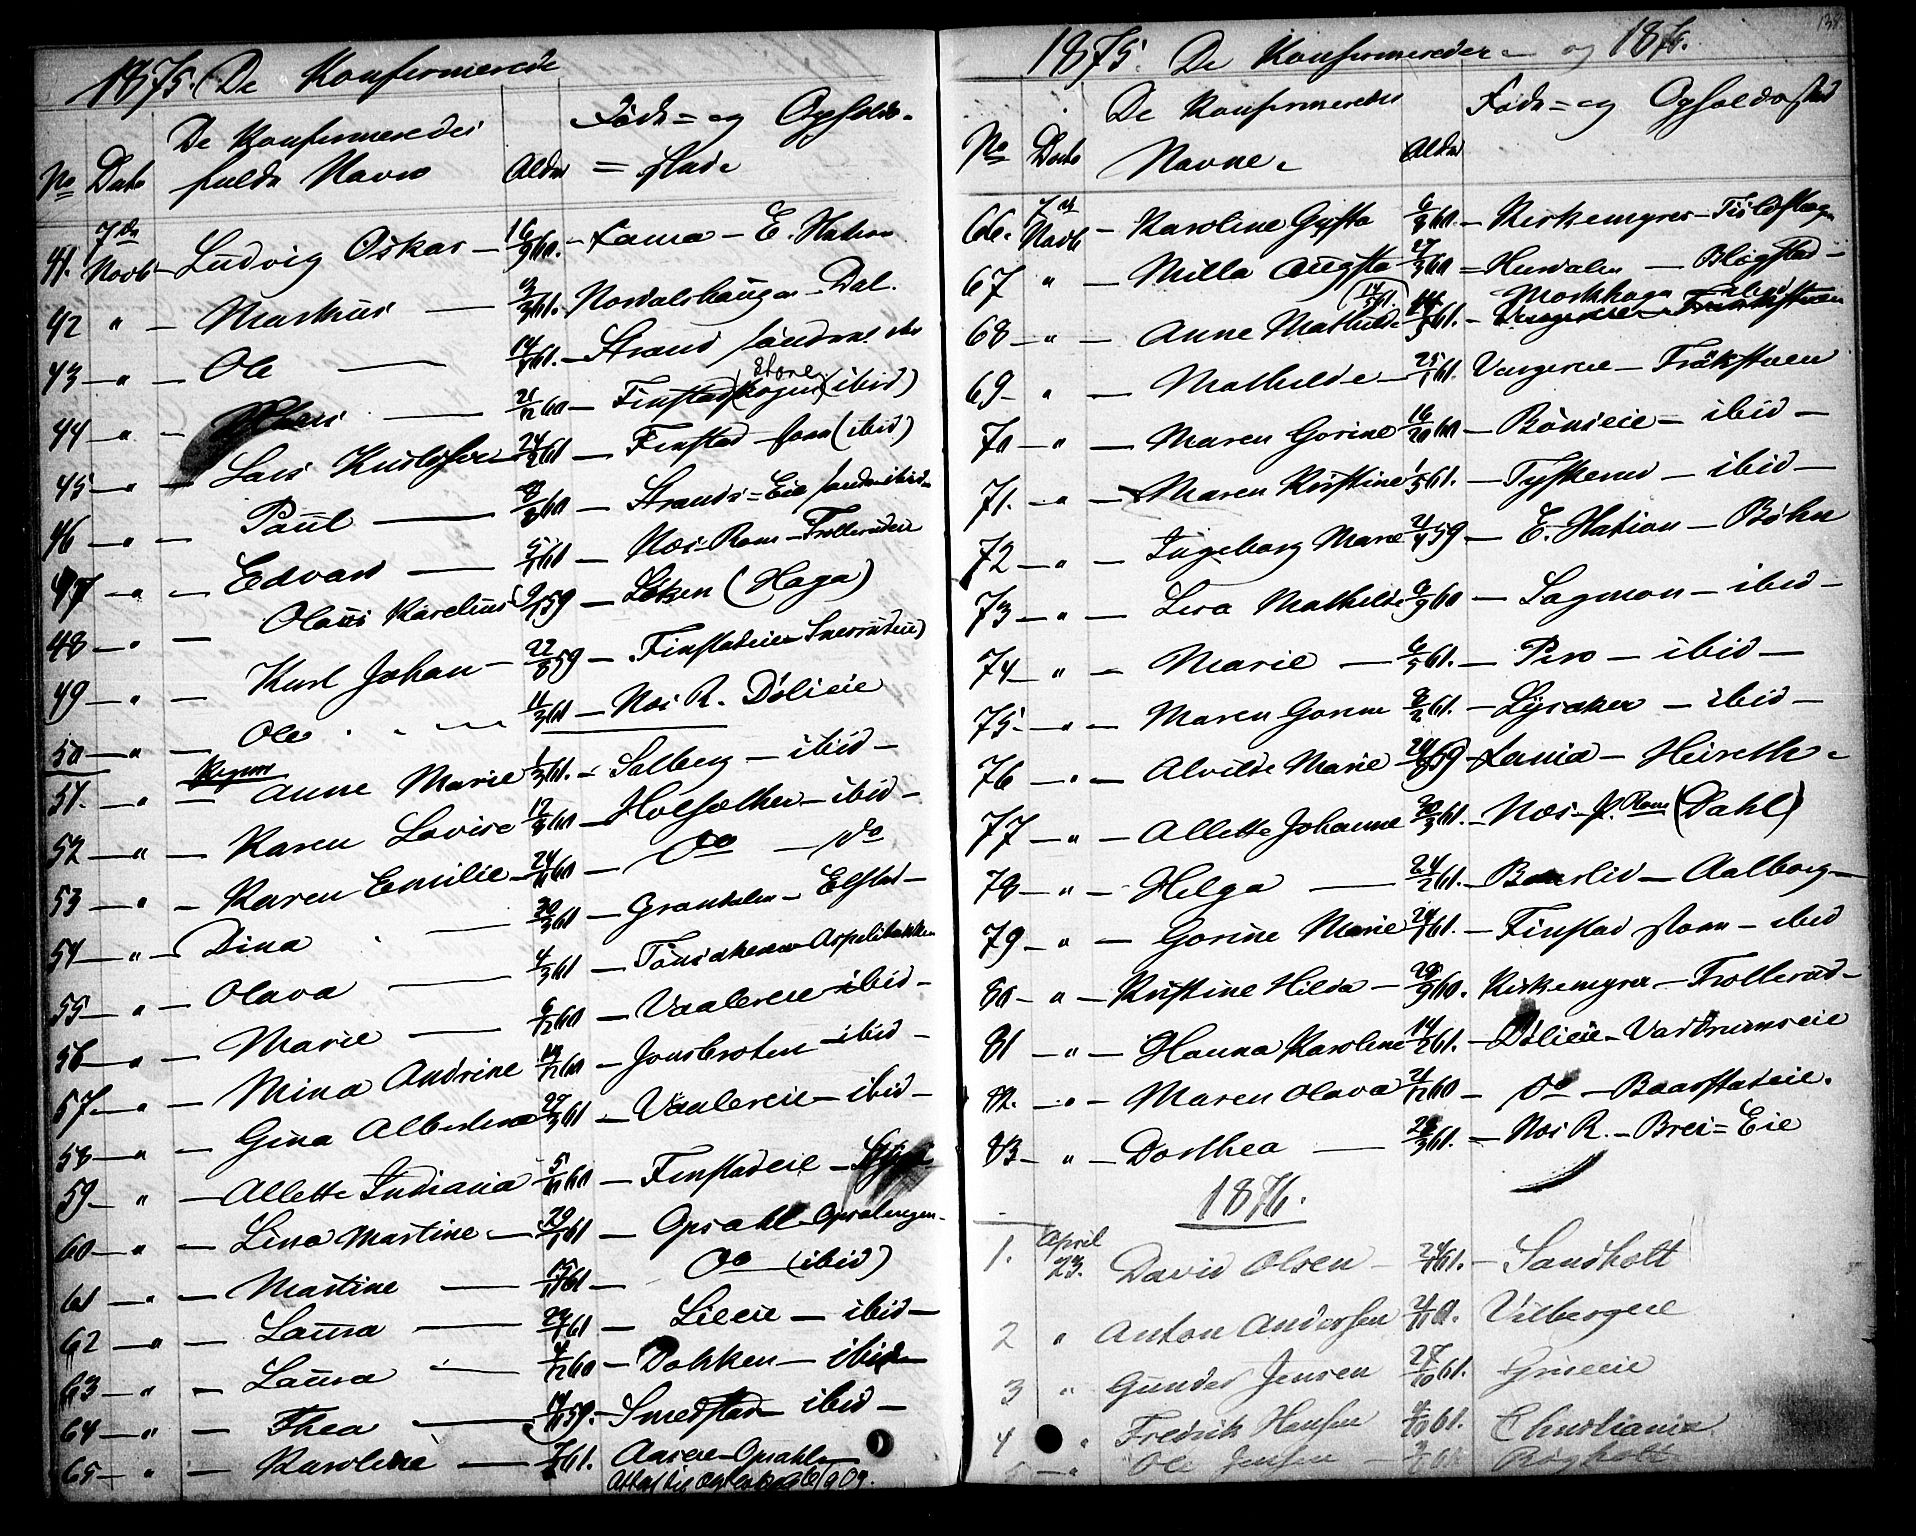 1875. De Konfirmerede
No Dato De Konfirmeredes fulde Navn Alder Føde= og Opholds= stad.
41. 7de Novb – Ludvig Oskar – 16/9 60. – Fama – E. Hation
42 " – Markus – 3/3 61. Nordalshaugen – Dal.
43 – " – Ole – 14/1 61. – Strand søndre do
44 – " – 21/12 60 – Finstad (Store skogen) (ibid)
45 – " – Lars Kristofer – 24/2 61 – Finstad – (ibid)
46 – " – Paul – 8/8 60 – Strands=Eie søndre ibid –
47 – " – Edvard – 5/1 61 – Næs – Rom – Trollerudeie
48 – " – Olaus Karelius 9/1 59 – Løken (Haga)
49 – " – Karl Johan – 22/8 59 – Finstadeie – Snerrudeie)
50 – " – Ole 11/3 61 – Næs R. Dølieie
Piger
51. – " – Anne Marie 1/3 61. – Solberg – ibid –
52 – " – Karen Lovise 12/8 60 – Holsether – ibid –
53 – " – Karen Emilie – 24/11 60 – Do – do
54 – " – Dina – 30/3 61 – Granholm – Elstad –
55 – " – Olava – 4/3 61 – Tønsakeren Aspelibakken
56 – " – Marie – 6/12 60 – Vaalereie – ibid –
57 – " – Mina Andrine 19/12 60 – Jonsbroten – ibid –
58 – " – Gina Albertine 27/3 61 – Vaalereie – ibid –
59 – " – Allette Indiana 5/11 60 – Finstadeie –
60 – " – Lina Martine – 29/1 61 – Opsahl – Opsalengen –
61 – " – Martine – 61 – Do (ibid)
62 – " – Laura – 24/1 61 – Lieeie – ibid –
63 – " – Laura – 4/12 60 – Dokken – ibid –
64 – " – Thea – 14/11 59. – Smedstad – ibid –
65 – " – Karoline – 61. Aaseie – Opsahl –
Attest 09.
1875. De Konfirmerede – og 1876.
No Dato De Konfirmeredes Navne. Alder Føde= og Opholdsstad
66. 7de Novb – Karoline Gusta 6/3 60. – Kirkemyren –
67 " – Milla Augusta 27/3 60 = Hurdalen – Bløgstad –
68 – " – Anne Mathilde 61. – Morkhagen – ibid
69 – " – Mathilde – 25/1 61. Vengereie – Frøkstuen
70 – " – Maren Gorine 16/10 60 – Bønseie – ibid –
71. – " – Maren Kristine 1/5 61. – Tyskerud – ibid –
72 – " – Ingeborg Marie 21/1 59 – E. Hation – Bøhn
73 – " – Lera Mathilde 9/9 60 – Sagmon – ibid –
74 – " – Marie – 6/5 61. – Pero – ibid –
75 – " – Maren Gorine 8/2 61. – Lysaker – ibid –
76 – " – Alvilde Marie 59 – Fania – Heireth –
77 – " – Allette Johanne 30/3 61. – Næs – P. Rom (Dahl)
78 – " – Helga – 24/2 61. – Baarlid – Aalborg –
79 – " – Gorine Marie 24/1 61. – Finstad – ibid
80 – " – Kristine Hilda – 28/9 60. Kirkemyren – Trollerud –
81 – " – Hanna Karoline 14/2 61. – Dølieie – Vardrumseie
82. – " – Maren Olava 21/12 60 – do – Baarstadeie.
83 – " – Dorthea – 28/3 61. – Næs R. – Brei=Eie
1876.
1. April 23. David Olsen – 61. – Sandholt
2 " Anton Andersen 60. Vilbergeie
3 " Gunder Jensen 61. Grueeie
4 " Fredrik Hansen 61. Christiania
5 – " Ole Jensen Bøgholt